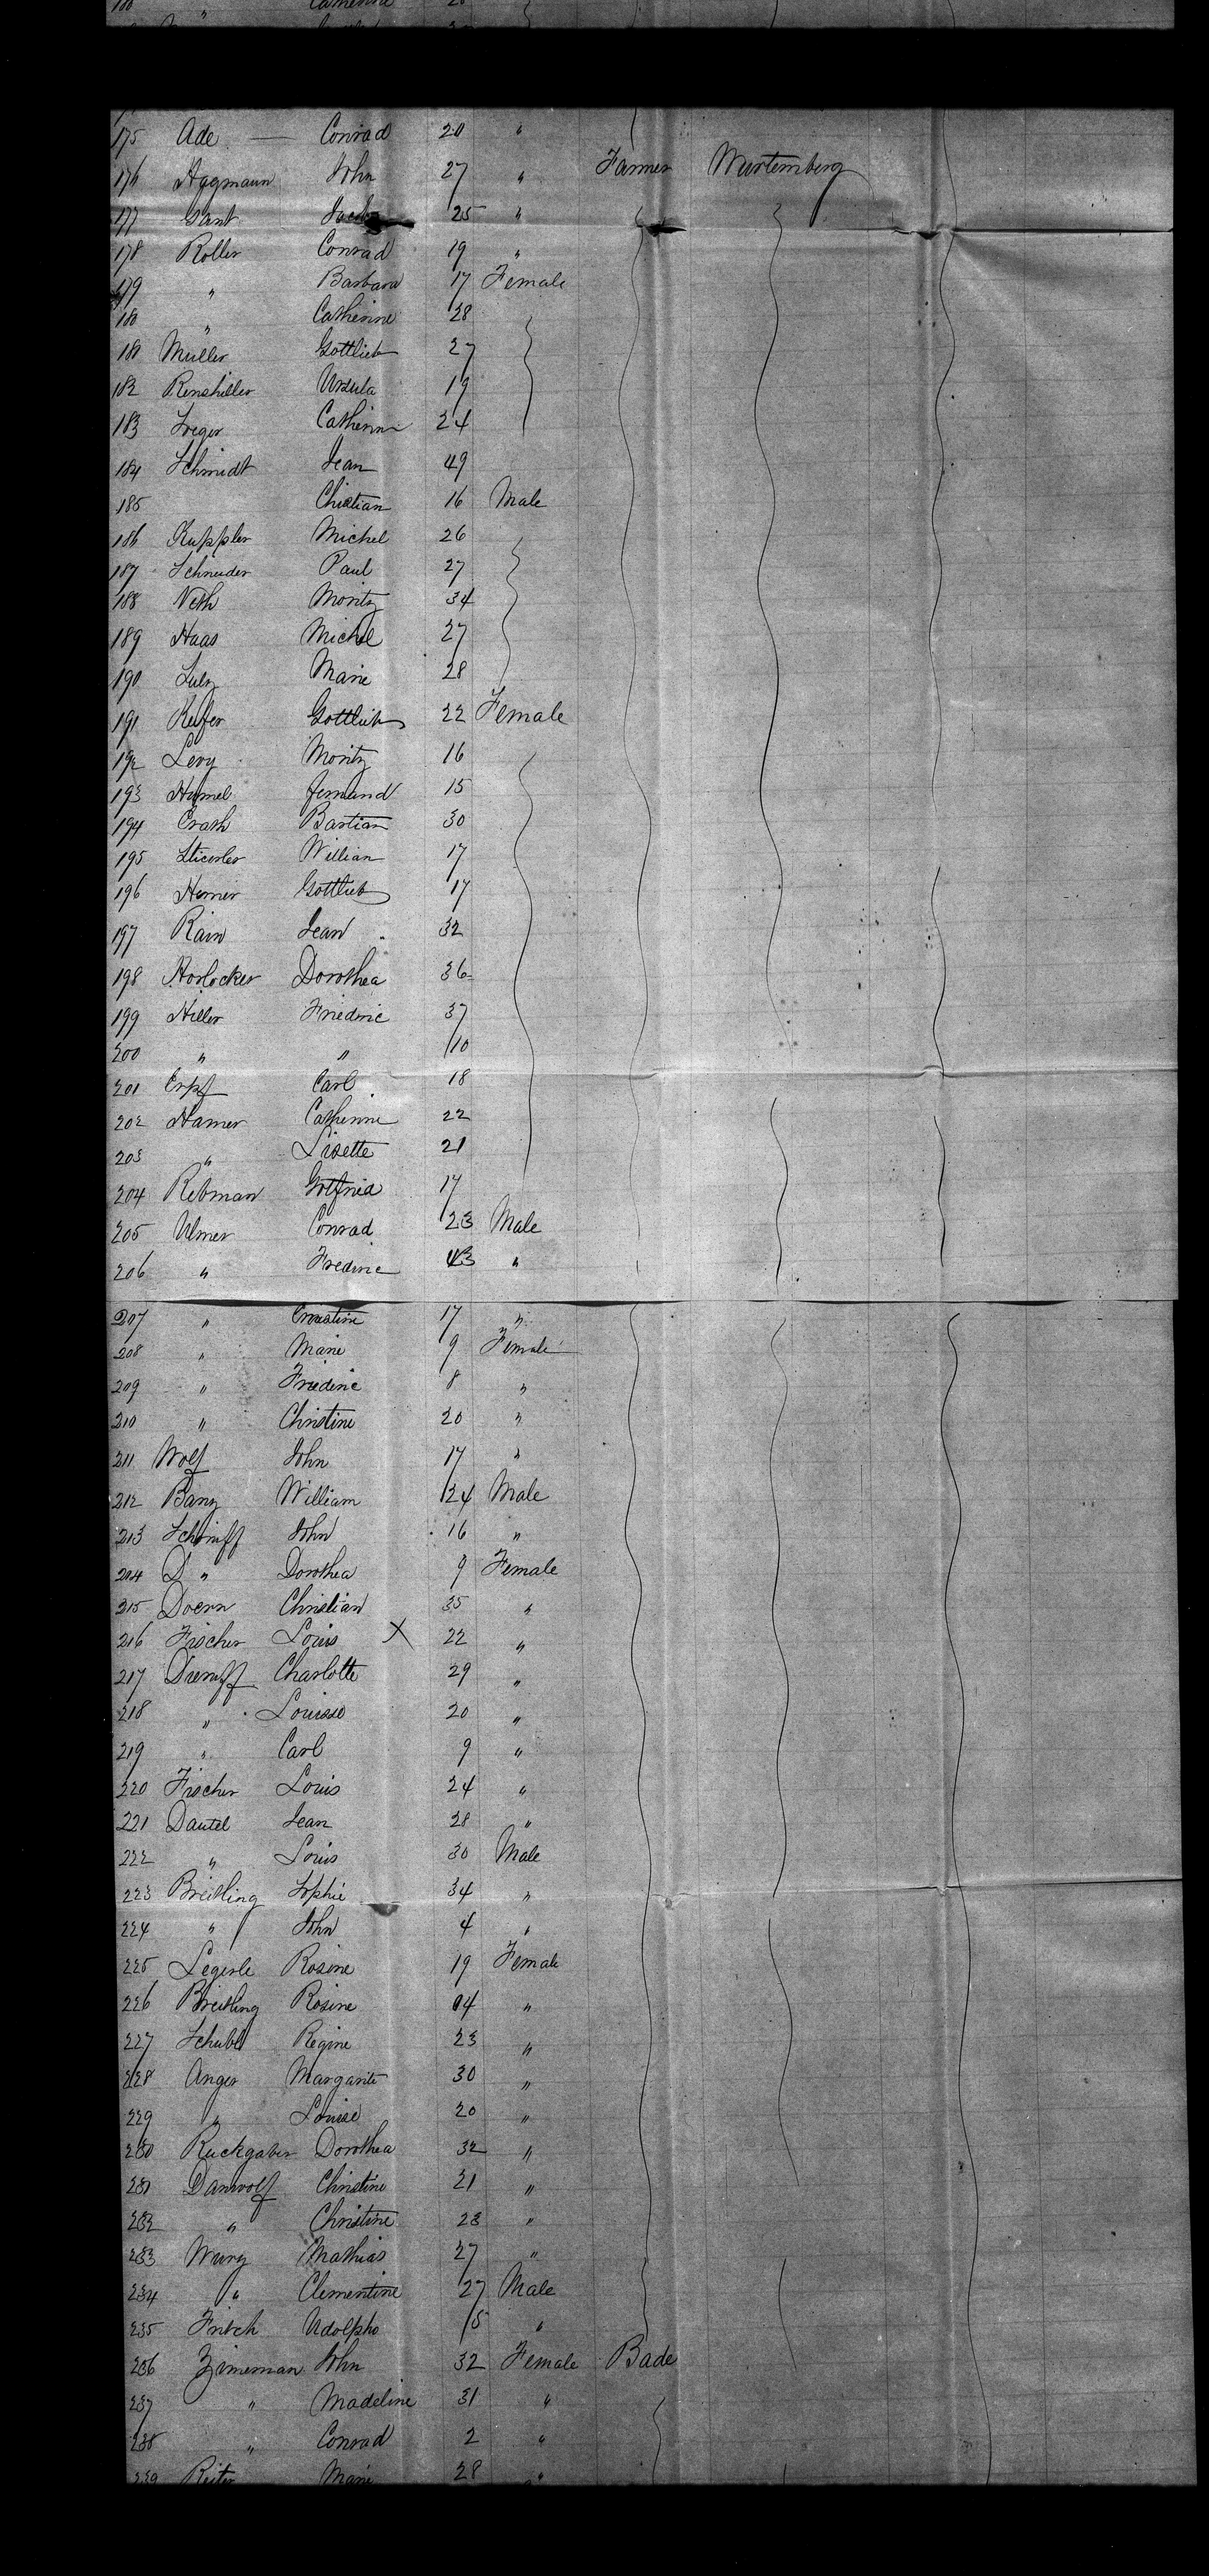 180 " Catherine 28
175 Ade — Conrad 20 "
176 Hagmann John 27 " Farmer Wurtemberg
177 Gant Jacob 25 "
178 Roller Conrad 19 "
179 " Barbara 17 Female
180 " Catherine 28
181 Müller Gottlieb 27
182 Renshiller Ursula 19
183 Catherine 24
184 Schmidt Jean 49
185 Chistian 16 Male
186 Kuppler Michel 26
187 Schneider Paul 27
188 Veth Moritz 34
189 Haas Michel 27
190 Lulz Marie 28
191 Kufer Gottlieb 22 Female
192 Levy Moritz 16
193 Humel fernand 15
194 Crash Bastian 30
195 William 17
196 Hemer Gottlieb 17
197 Rain Jean 32
198 Horlocker Dorothea 36
199 Hiller Friederic 37
200 " " 10
201 Erpf Carl 18
202 Hamer Catherine 22
203 " Lisette 21
204 Rebman Gotfried 17
205 Ulmer Conrad 23 Male
206 " Frederic 43 "
207 " Ernestine 17 "
208 " Marie 9 Female
209 " Friederic 8 "
210 " Christine 20 "
211 Wolf John 17 "
212 Banz William 24 Male
213 Schimff John 16 "
204 D " Dorothea 9 Female
215 Doern Christian 35 "
216 Fischer Louis X 22 "
217 Diemff Charlotte 29 "
218 " Louise 20 "
219 " Carl 9 "
220 Fischer Louis 24 "
221 Dautel Jean 28 "
222 " Louis 30 Male
223 Breitling Sophie 34 "
224 " John 4 "
225 Legerle Rosine 19 Female
226 Breitling Rosine 14 "
227 Schubl Regine 23 "
228 Anger Margarite 30 "
229 " Louise 20 "
230 Ruckgaber Dorothea 32 "
231 Danwolf Christine 21 "
232 " Christine 23 "
233 Wurz Mathias 27 "
234 " Clementine 27 Male
235 Fritch Adolphe 15 "
236 Zimerman John 32 Female Bade
237 " Madeline 31 "
238 " Conrad 2 "
239 Reiter Marie 28 "